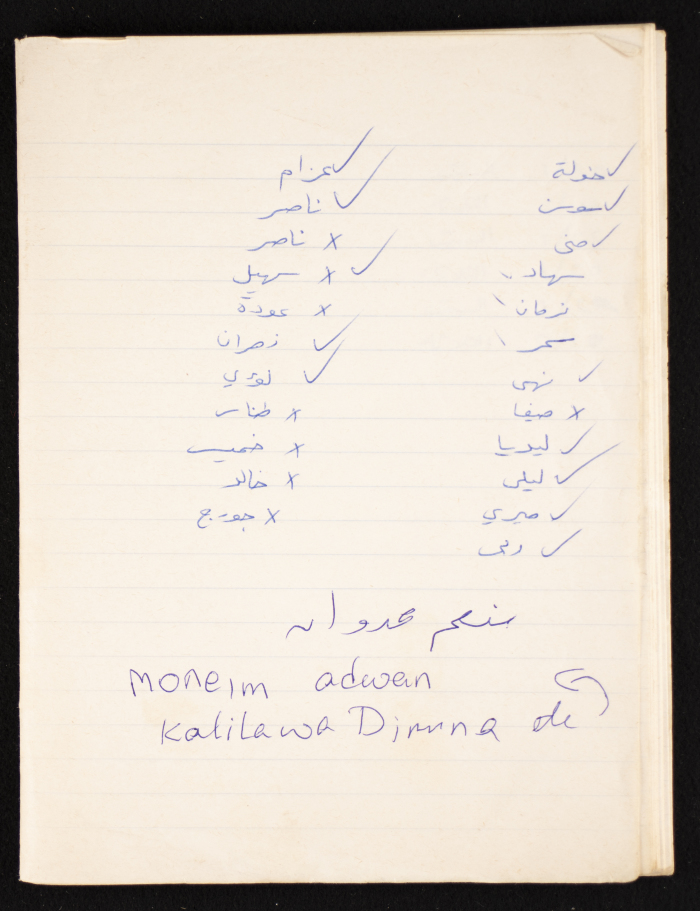 خولة ✓
سوسن ✓
منى ✓
سهاد
نرمان
سمر
نهى ✓
صيفا x
ليديا ✓
ليلى ✓
ميري ✓
✓
عزام ✓
ناصر ✓
ناصر x
سهيل x ✓
عودة x
زهران ✓
لؤي ✓
x
خميس x
خالد x
جورج x
منعم عدوان
moneim adwan
Kalila wa Dimna de